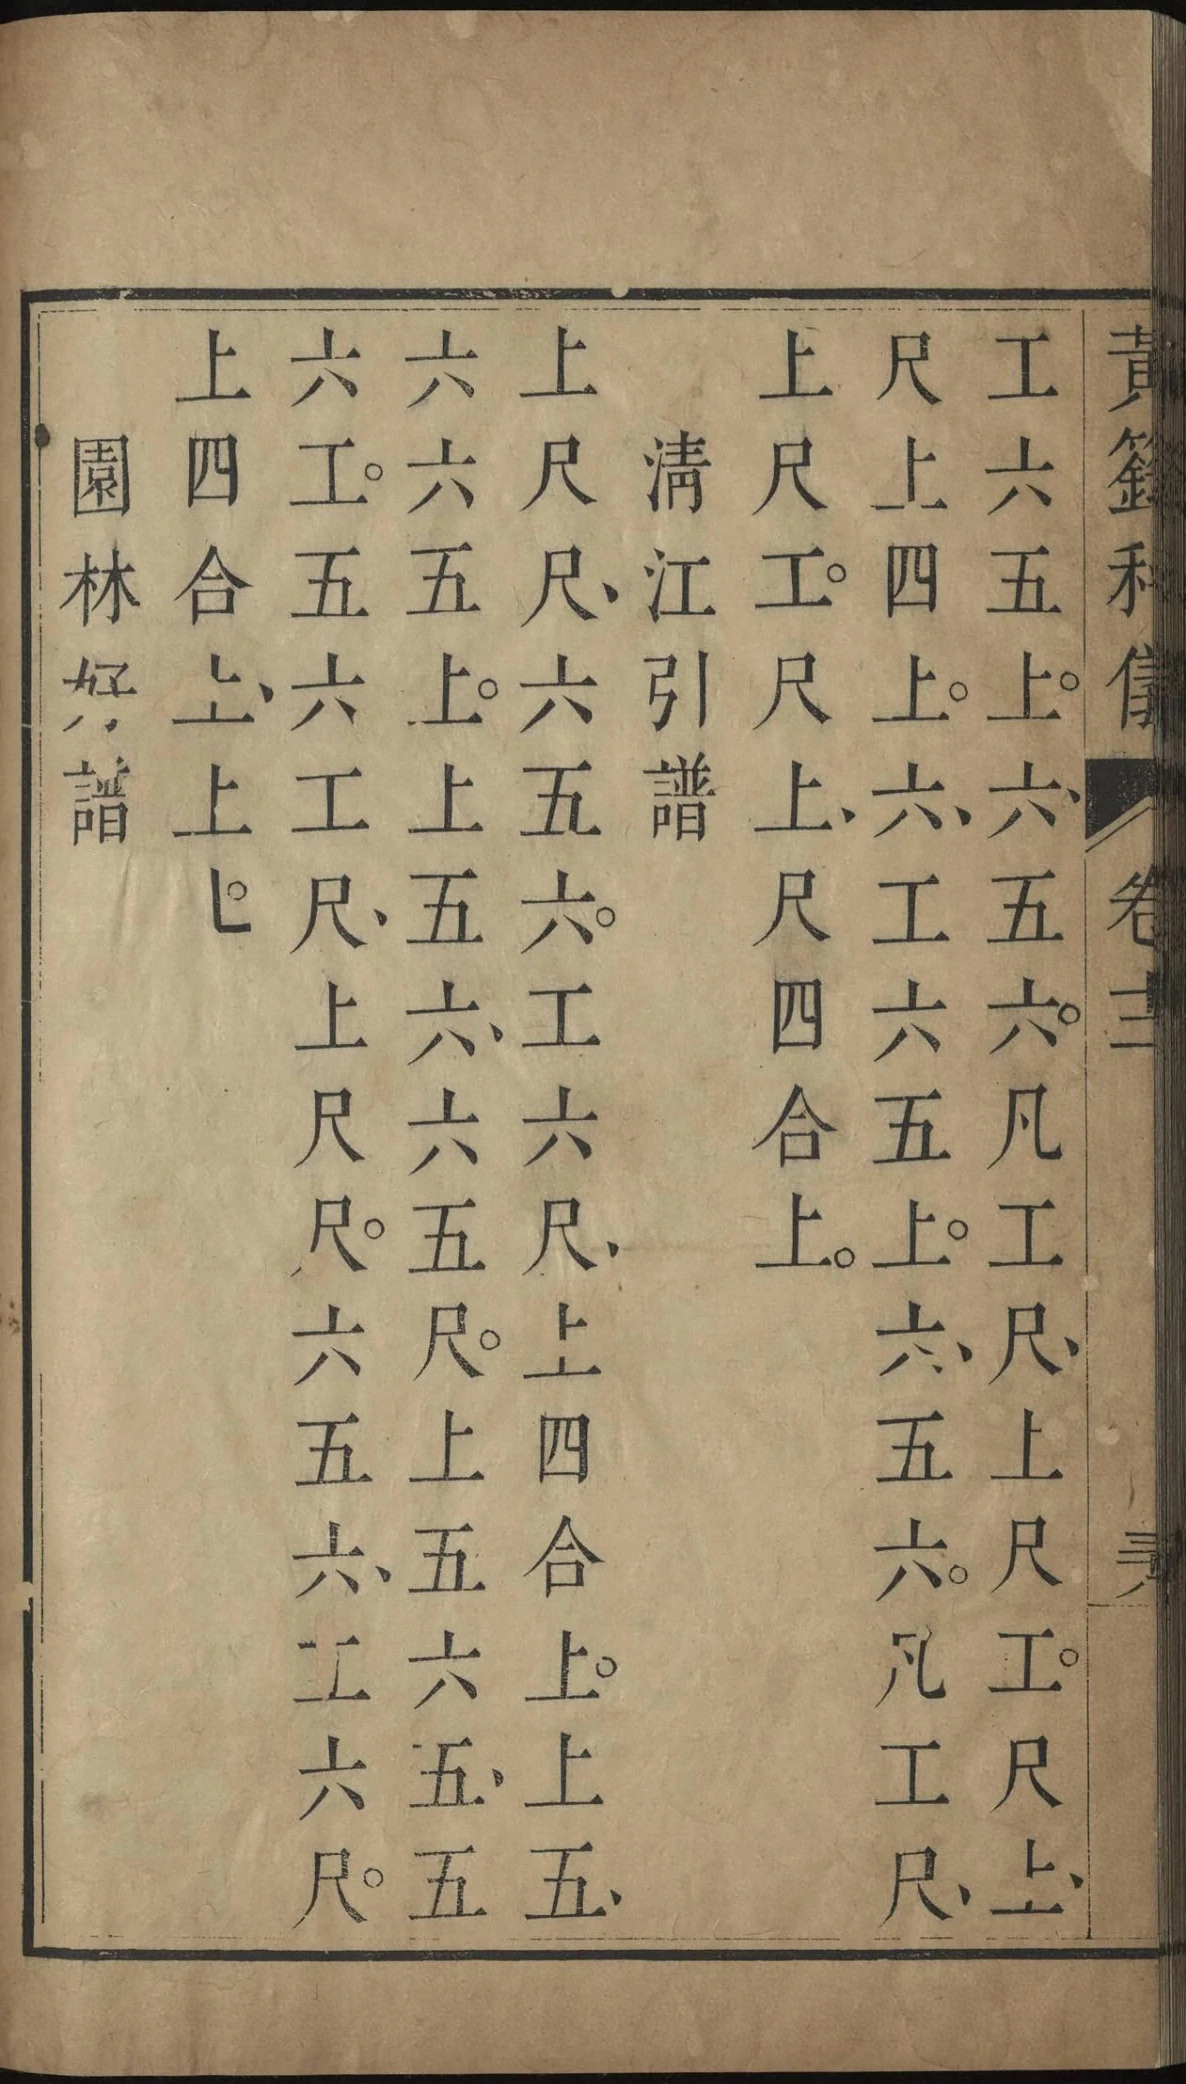 黃籙科儀 卷十二
工六五上。六、五六。凡工尺、上尺工。尺上、
尺上四上。六、工六五上。六、五六。凡工尺、
上尺工。尺上、尺四合上。
淸江引譜
上尺尺、六五六。工六尺、上四合上。上五、
六六五上。上五六、六五尺。上五六五、五
六工。五六工尺、上尺尺。六五六、工六尺。
上四合上、上上。
園林好譜